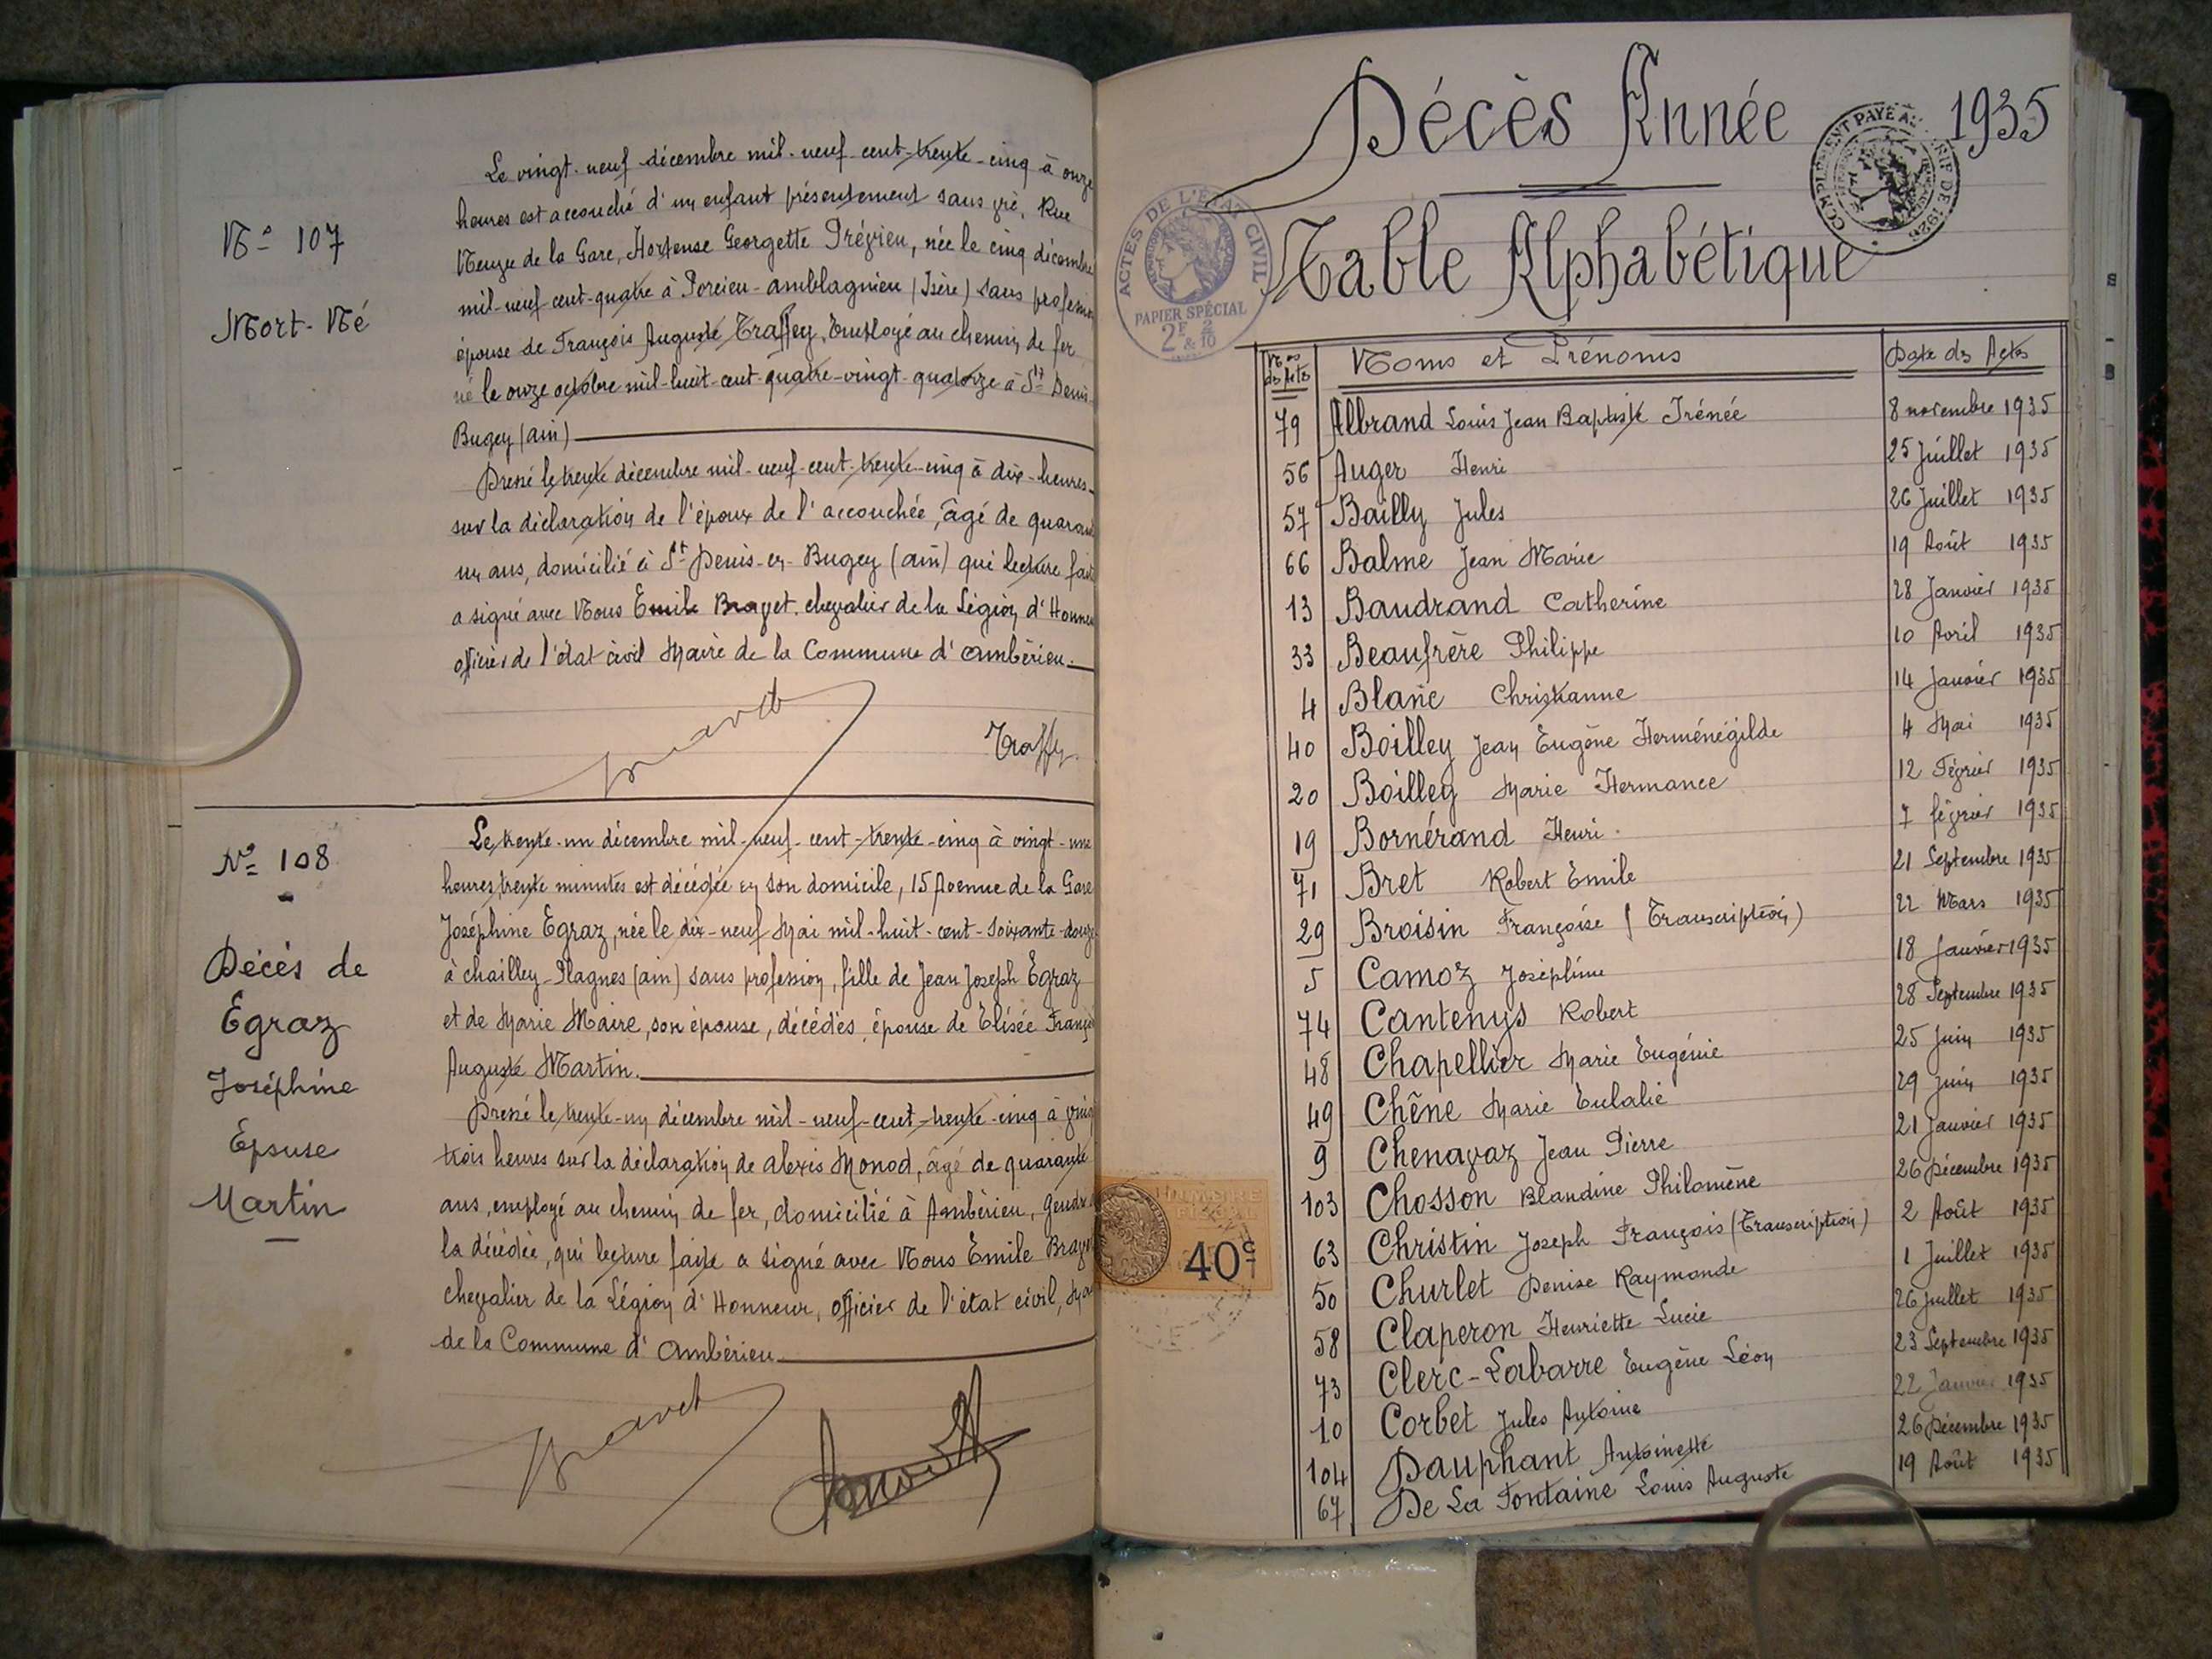 N° 107
Mort-Né
Le vingt-neuf décembre mil-neuf-cent-trente-cinq à onze
heures est accouché d'un enfant présentement sans vie, Rue
Neuve de la Gare, Hortense Georgette Trévieu, née le cinq décembre
mil-neuf-cent-quatre à Porcieu-amblagnieu (Isère) sans profession
épouse de François Auguste Traffey, Employé au chemin de fer
né le onze octobre mil-huit-cent-quatre-vingt-quatorze à St Denis-
Bugey (ain)
Dressé le trente décembre mil-neuf-cent-trente-cinq à dix-heures
sur la déclaration de l'époux de l'accouchée, âgé de quarante
un ans, domicilié à St Denis-en-Bugey (ain) qui lecture faite
a signé avec Nous Emile Bravet, chevalier de la Légion d'Honneur
officier de l'état civil Maire de la Commune d'ambérieu.
Bravet
Traffey
N° 108
Décès de
Egraz
Joséphine
Epouse
Martin
Le trente-un décembre mil-neuf-cent-trente-cinq à vingt-une
heures trente minutes est décédée en son domicile, 15 Avenue de la Gare
Joséphine Egraz, née le dix-neuf Mai mil-huit-cent-soixante-douze
à chailley-Plagnes (ain) sans profession, fille de Jean Joseph Egraz
et de Marie Maire, son épouse, décédés, épouse de Elisée François
Auguste Martin.
Dressé le trente-un décembre mil-neuf-cent-trente-cinq à vingt
trois heures sur la déclaration de alexis Monod, âgé de quarante
ans, employé au chemin de fer, domicilié à Ambérieu, gendre de
la décédée, qui lecture faite a signé avec Nous Emile Bravet
chevalier de la Légion d'Honneur, officier de l'état civil, Maire
de la Commune d'ambérieu
Bravet
Décès Année 1935
COMPLEMENT PAYE AU TARIF DE 1926
ACTES DE L'ETAT CIVIL
PAPIER SPÉCIAL
2F & 2/10
Table Alphabétique
Nos des Actes Noms et Prénoms Date des Actes
79 Albrand Louis Jean Baptiste Irénée 8 novembre 1935
56 Auger Henri 25 Juillet 1935
57 Bailly Jules 26 Juillet 1935
66 Balme Jean Marie 19 Août 1935
13 Baudrand Catherine 28 Janvier 1935
33 Beaufrère Philippe 10 Avril 1935
4 Blanc Christianne 14 Janvier 1935
40 Boilley Jean Eugène Herménégilde 4 Mai 1935
20 Boilley Marie Hermance 12 Février 1935
19 Bornérand Henri 7 février 1935
71 Bret Robert Emile 21 Septembre 1935
29 Broisin Françoise (Transcription) 22 Mars 1935
5 Camoz Joséphine 18 Janvier 1935
74 Cantenys Robert 28 Septembre 1935
48 Chapellier Marie Eugénie 25 Juin 1935
49 Chêne Marie Eulalie 29 Juin 1935
9 Chenavaz Jean Pierre 21 Janvier 1935
103 Chosson Blandine Philomène 26 Décembre 1935
63 Christin Joseph François (Transcription) 2 Août 1935
50 Churlet Denise Raymonde 1 Juillet 1935
58 Claperon Henriette Lucie 26 Juillet 1935
73 Clerc-Labarre Eugène Léon 23 Septembre 1935
10 Corbet Jules Antoine 22 Janvier 1935
104 Dauphant Antoinette 26 Décembre 1935
67 De La Fontaine Louis Auguste 19 Août 1935
40c